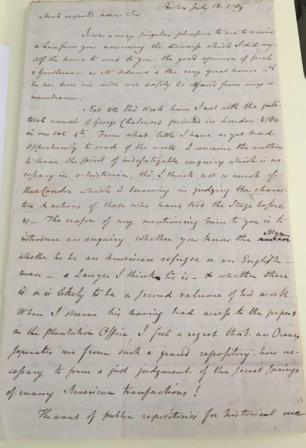 Boston July 18. 1789
Much respected & dear Sir
It was a very singular pleasure to me to receive
a line from you announcing the Diverse which I did my-
self the honor to send to you, the good opinion of such
a Gentleman as Mr Adams & the very great honor wh
he has done me will not easily be effaced from my re-
membrance.
Not till this Week have I met with the poli-
tical annals of George Chalmers printed in London 1780
in one vol. 4to. From what little I have as yet had
opportunity to read of the work, I conceive the author
to have the spirit of indefatigable enquiry which is ne-
cessary in a historian, tho I think not so much of
that Candor which is becoming in judging the charac-
ters & actions of those who have trod the Stage before
us— The reason of my mentioning him to you is to
introduce an enquiry whether you know the Man
whether he be an American refugee or an English-
man — a Lawyer I think he is — & whether there
is or is likely to be a second volume of his work.
When I observe his having had access to the papers
in the Plantation Office, I feel a regret that an Ocean
separates me from such a grand repository. how ne-
cessary to form a just judgment of the secret springs
of many American transactions!
The want of public repositories for historical ma